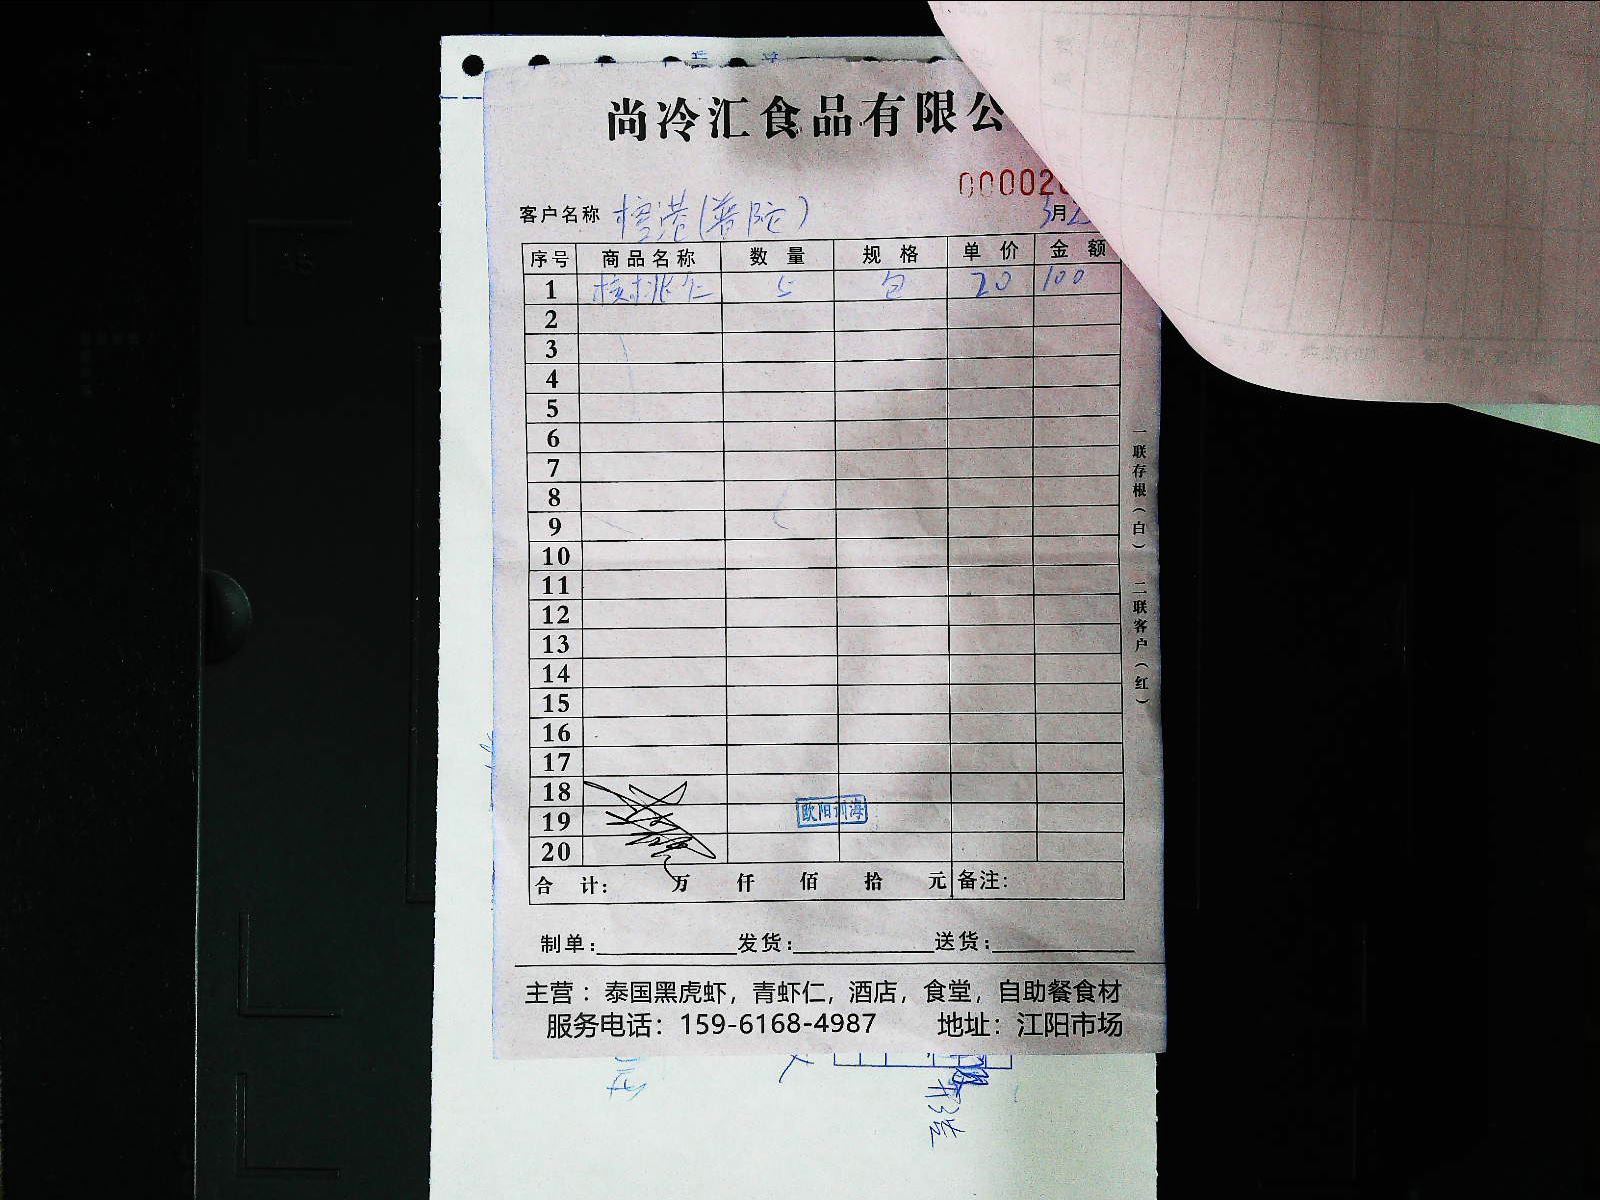 尚冷汇食品有限公
00002
客户名称 檀港(普陀) 3月2
序号 商品名称 数量 规格 单价 金额
1 核桃仁 5 包 20 100
2
3
4
5
6
7
8
9
10
11
12
13
14
15
16
17
18
19 欧阳训海
20
合计： 万 仟 佰 拾 元 备注：
制单： 发货： 送货：
主营：泰国黑虎虾，青虾仁，酒店，食堂，自助餐食材
服务电话：159-6168-4987 地址：江阳市场
一联存根（白） 二联客户（红）